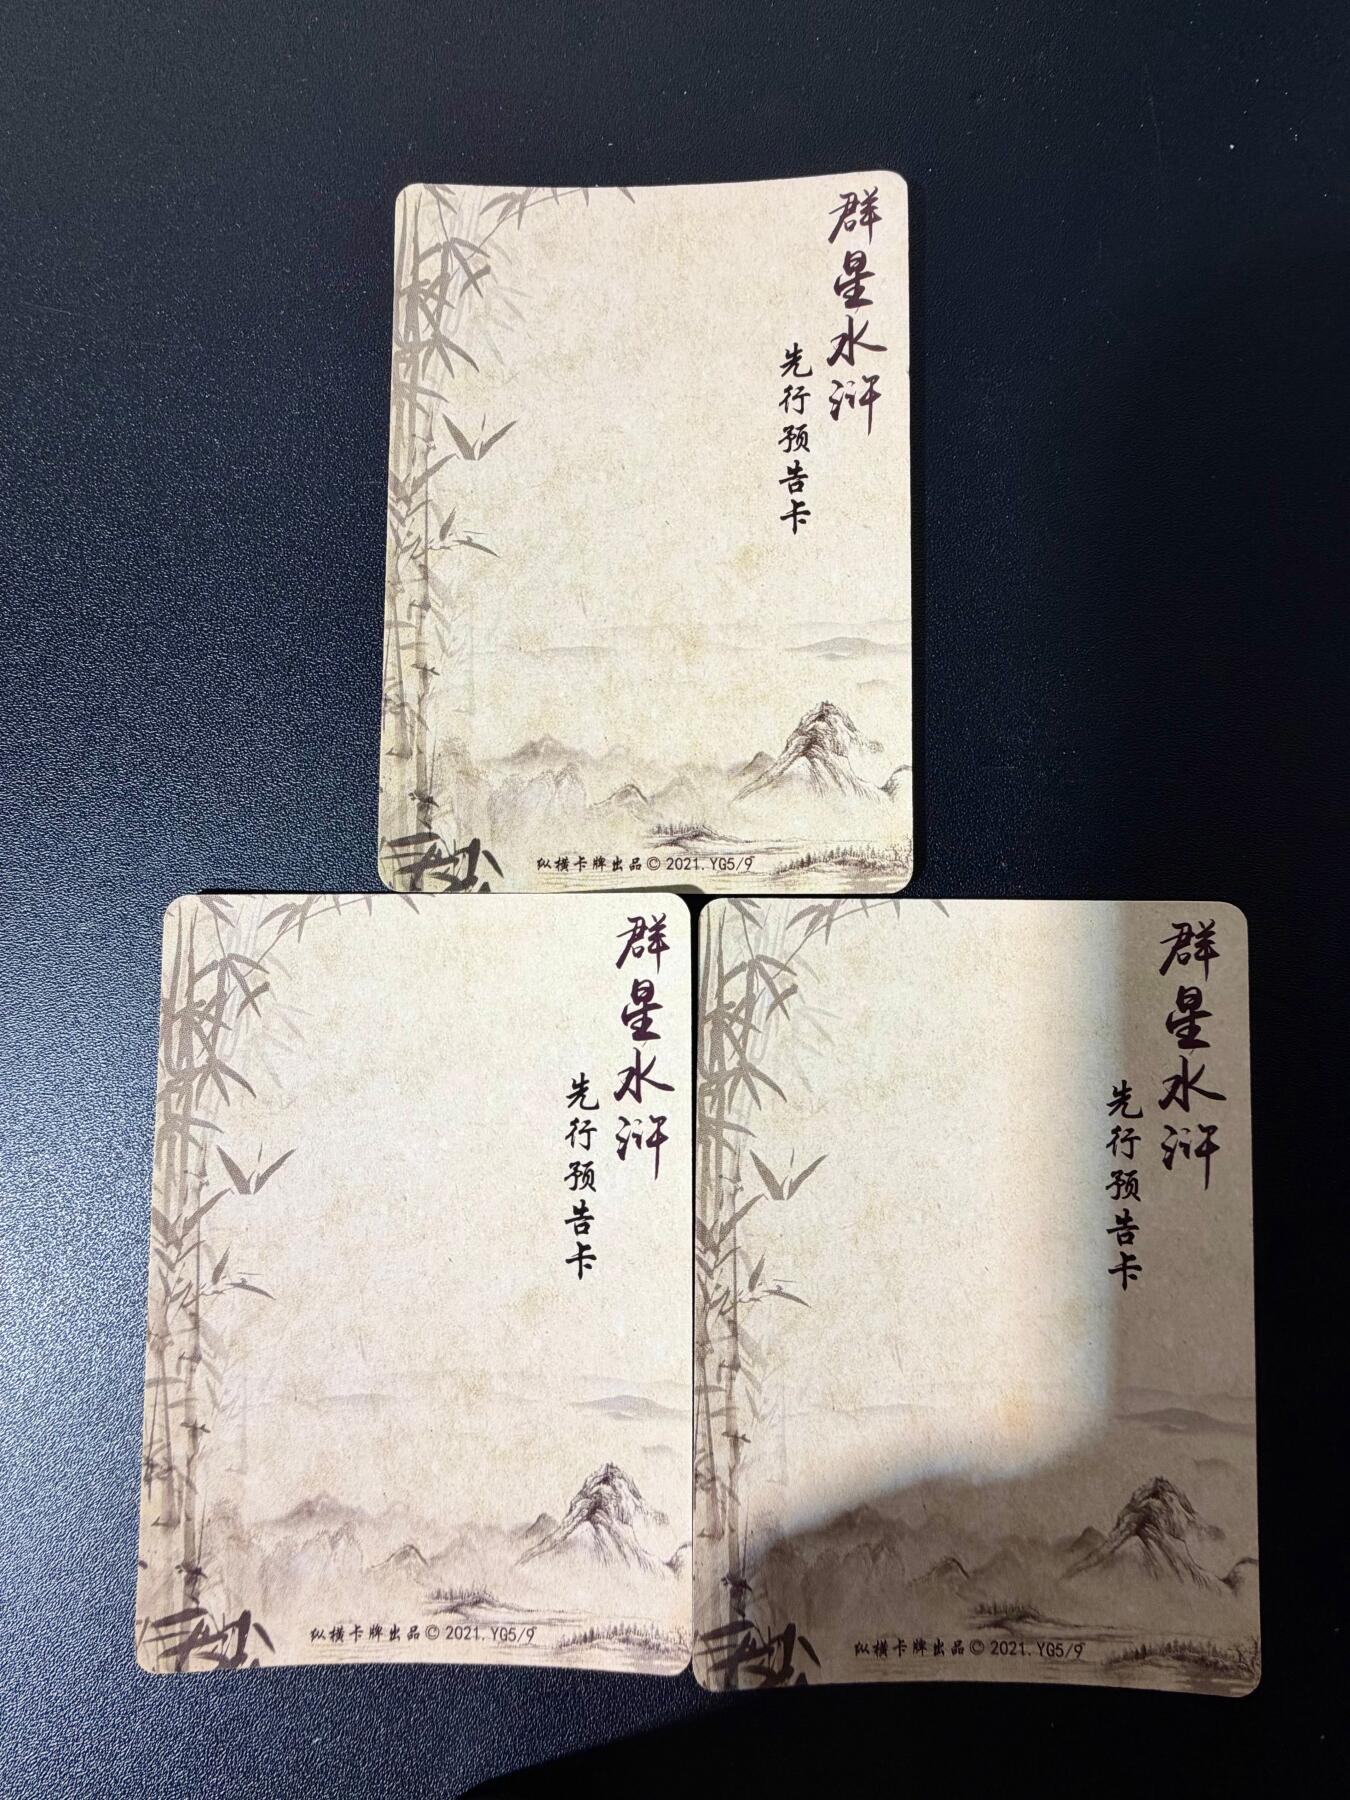 群星水浒
先行预告卡
纵横卡牌出品© 2021. YG5/9
群星水浒
先行预告卡
纵横卡牌出品© 2021. YG5/9
群星水浒
先行预告卡
纵横卡牌出品© 2021. YG5/9